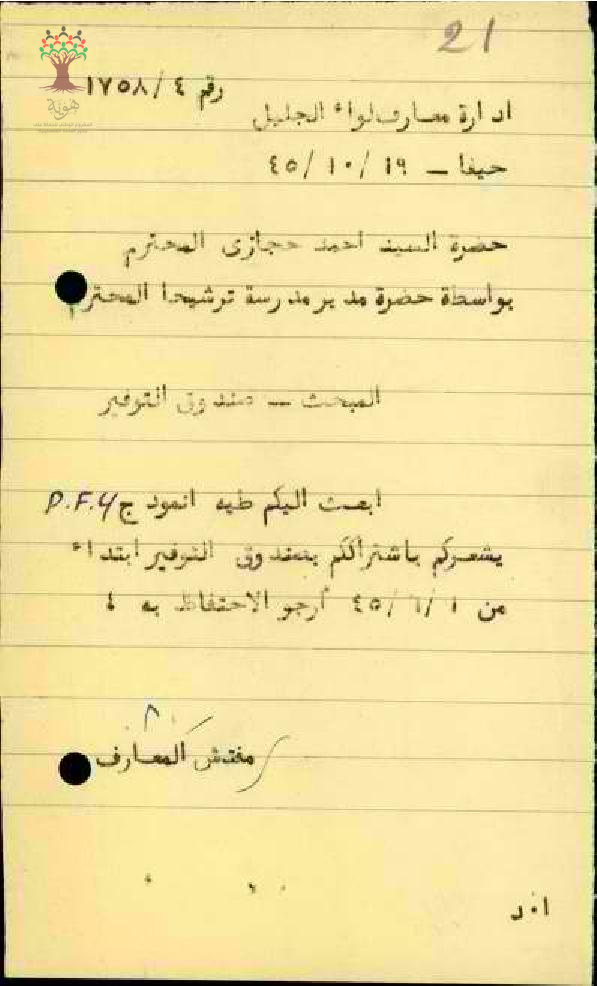 21
هوية
رقم ٤/ ١٧٥٨
ادارة معارف لواء الجليل
حيفا - ١٩ /١٠ /٤٥
حضرة السيد احمد حجازى المحترم
بواسطة حضرة مدير مدرسة ترشيحا المحترم
المبحث - صندوق التوفير
ابعث اليكم طيه انموذج P.F.4
يشعركم باشتراككم بصندوق التوفير ابتداء
من ١ /٦/ ٤٥ أرجو الاحتفاظ به ،
مفتش المعارف
ا٠د